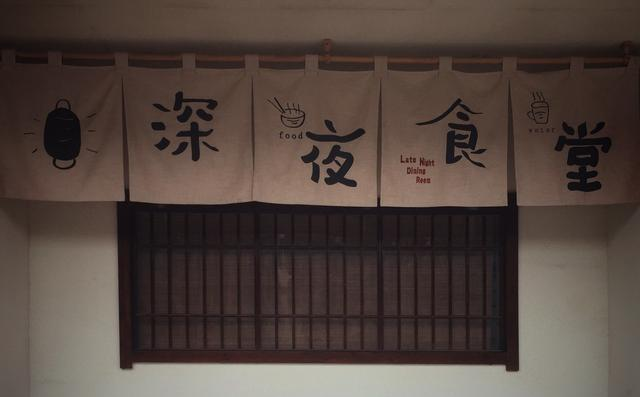 深夜食堂
food
Late Night
Dining
Room